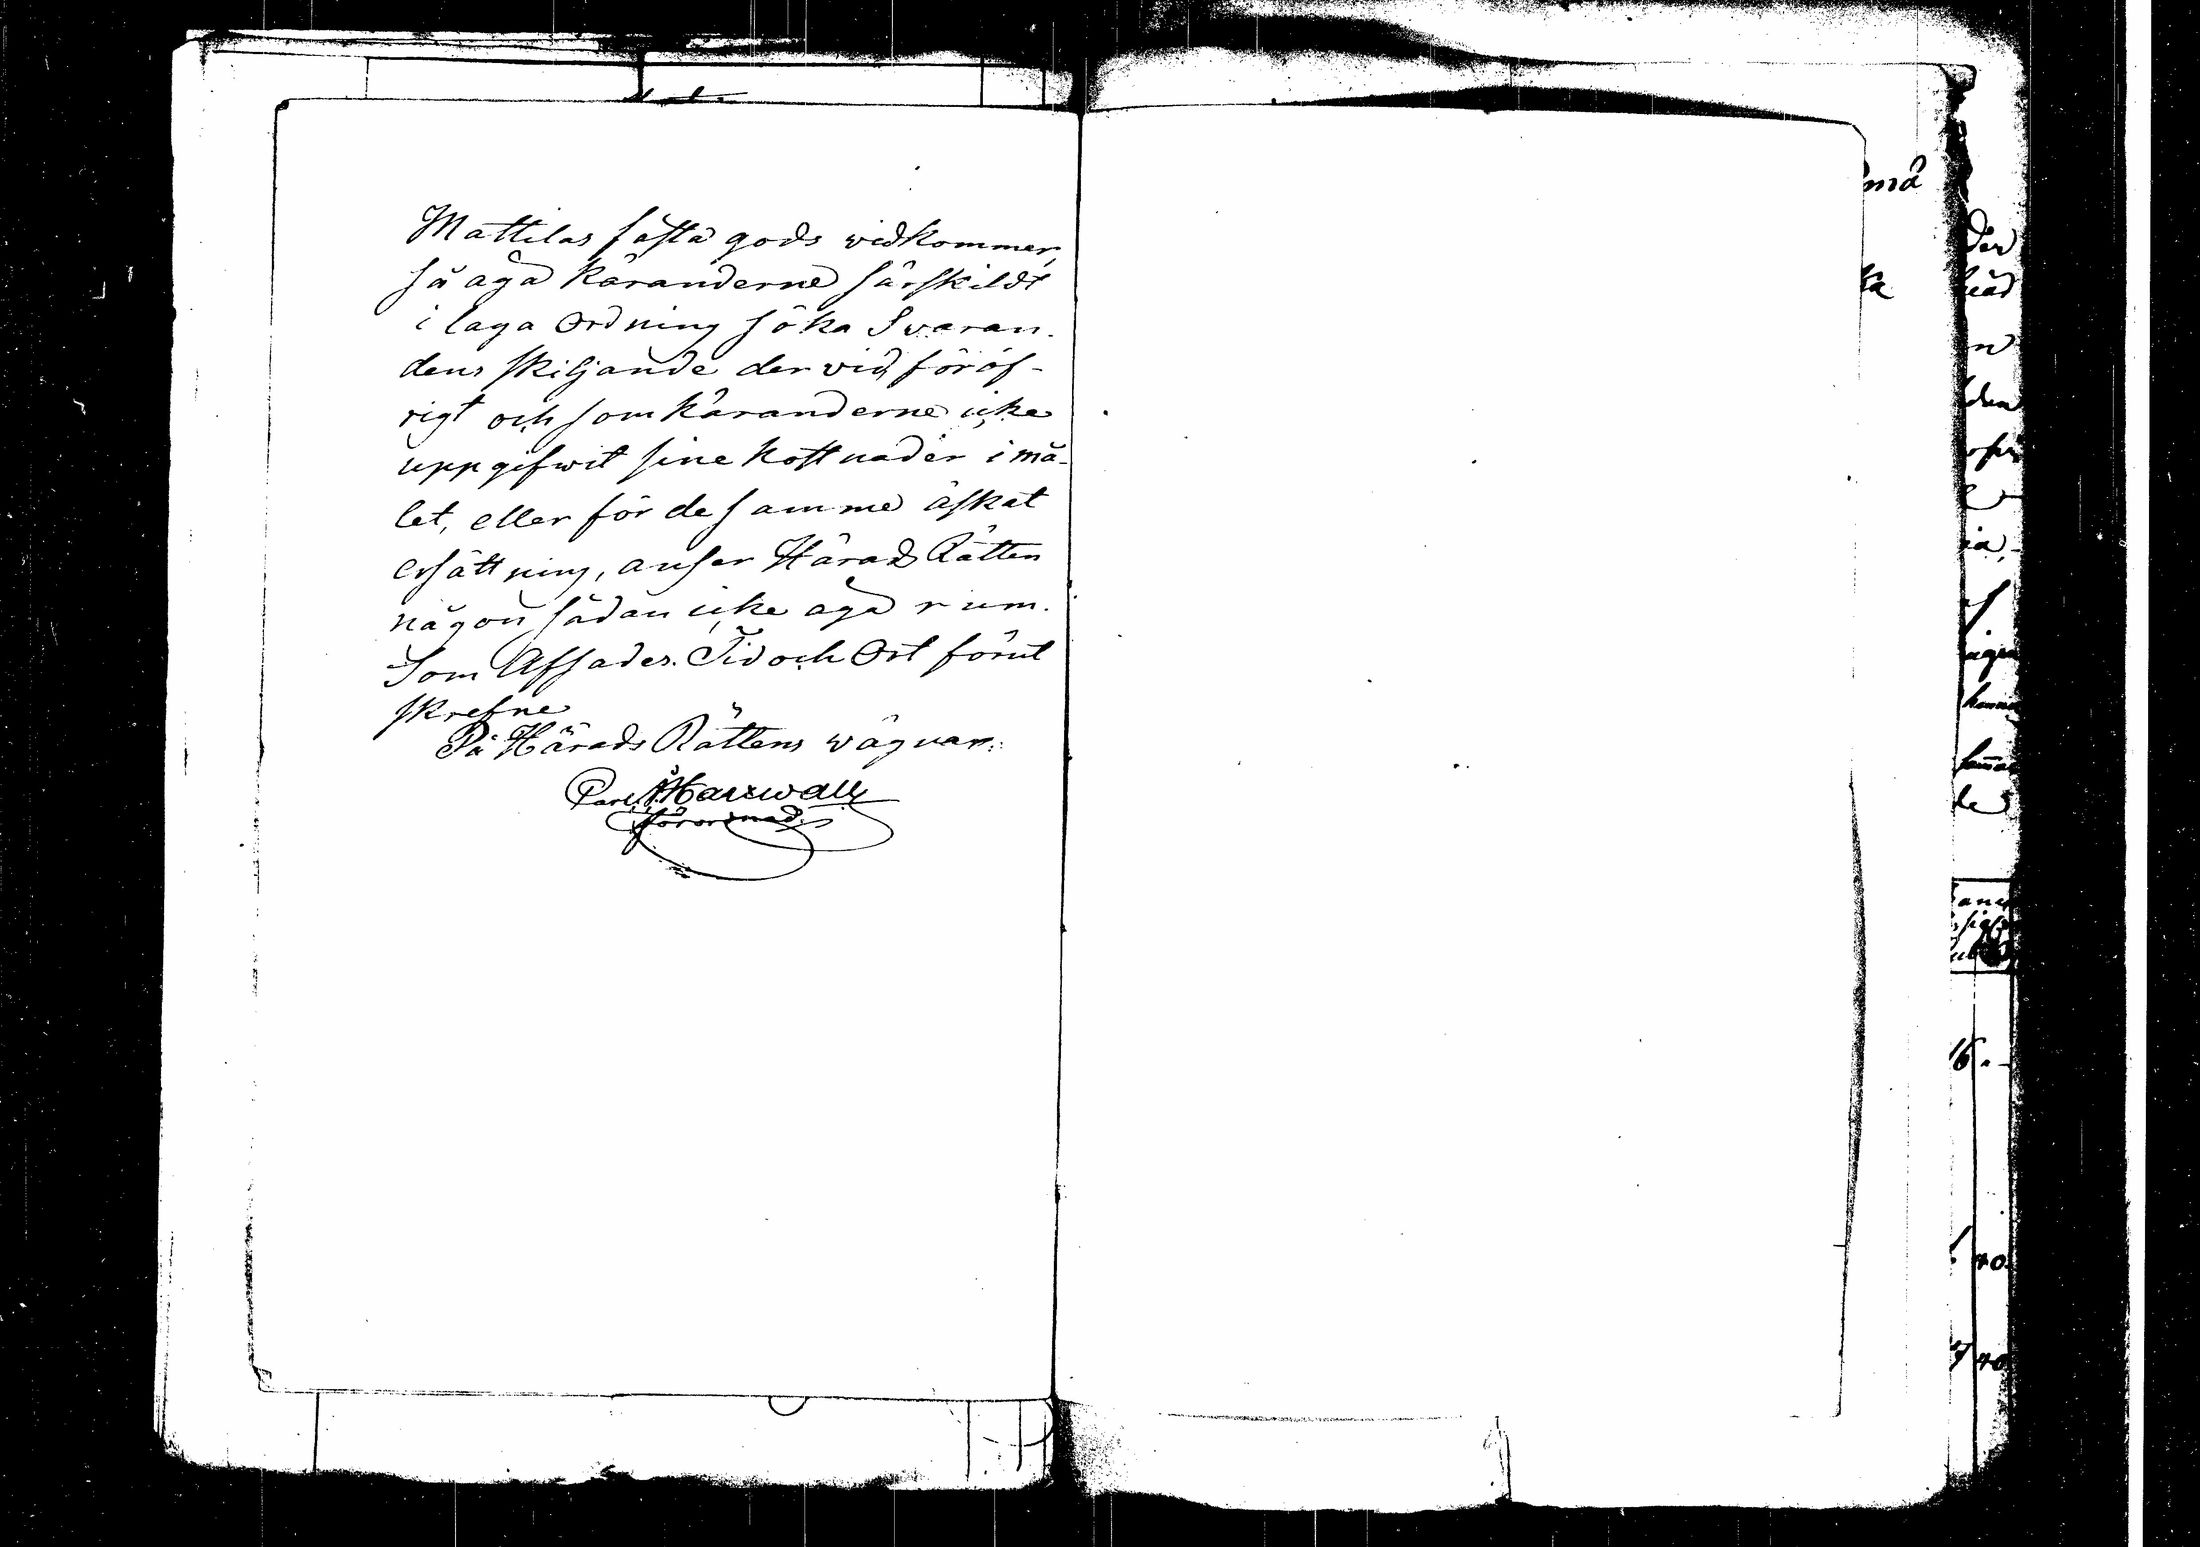 Mattilas fasta gods widkommer,
så äga Käranderne särskildt
i laga Ordning söka Svaran-
dens skiljande der vid, föröf-
rigt och som Käranderne icke
uppgifwit sine kostnader i må-
let, eller för desamme äskat
ersättning, anser Härads Rätten
någon sådan icke äga rum.
Som Afsades. Tid och Ort förut
skrefne
På Härads Rättens wägnar:
förordnad.